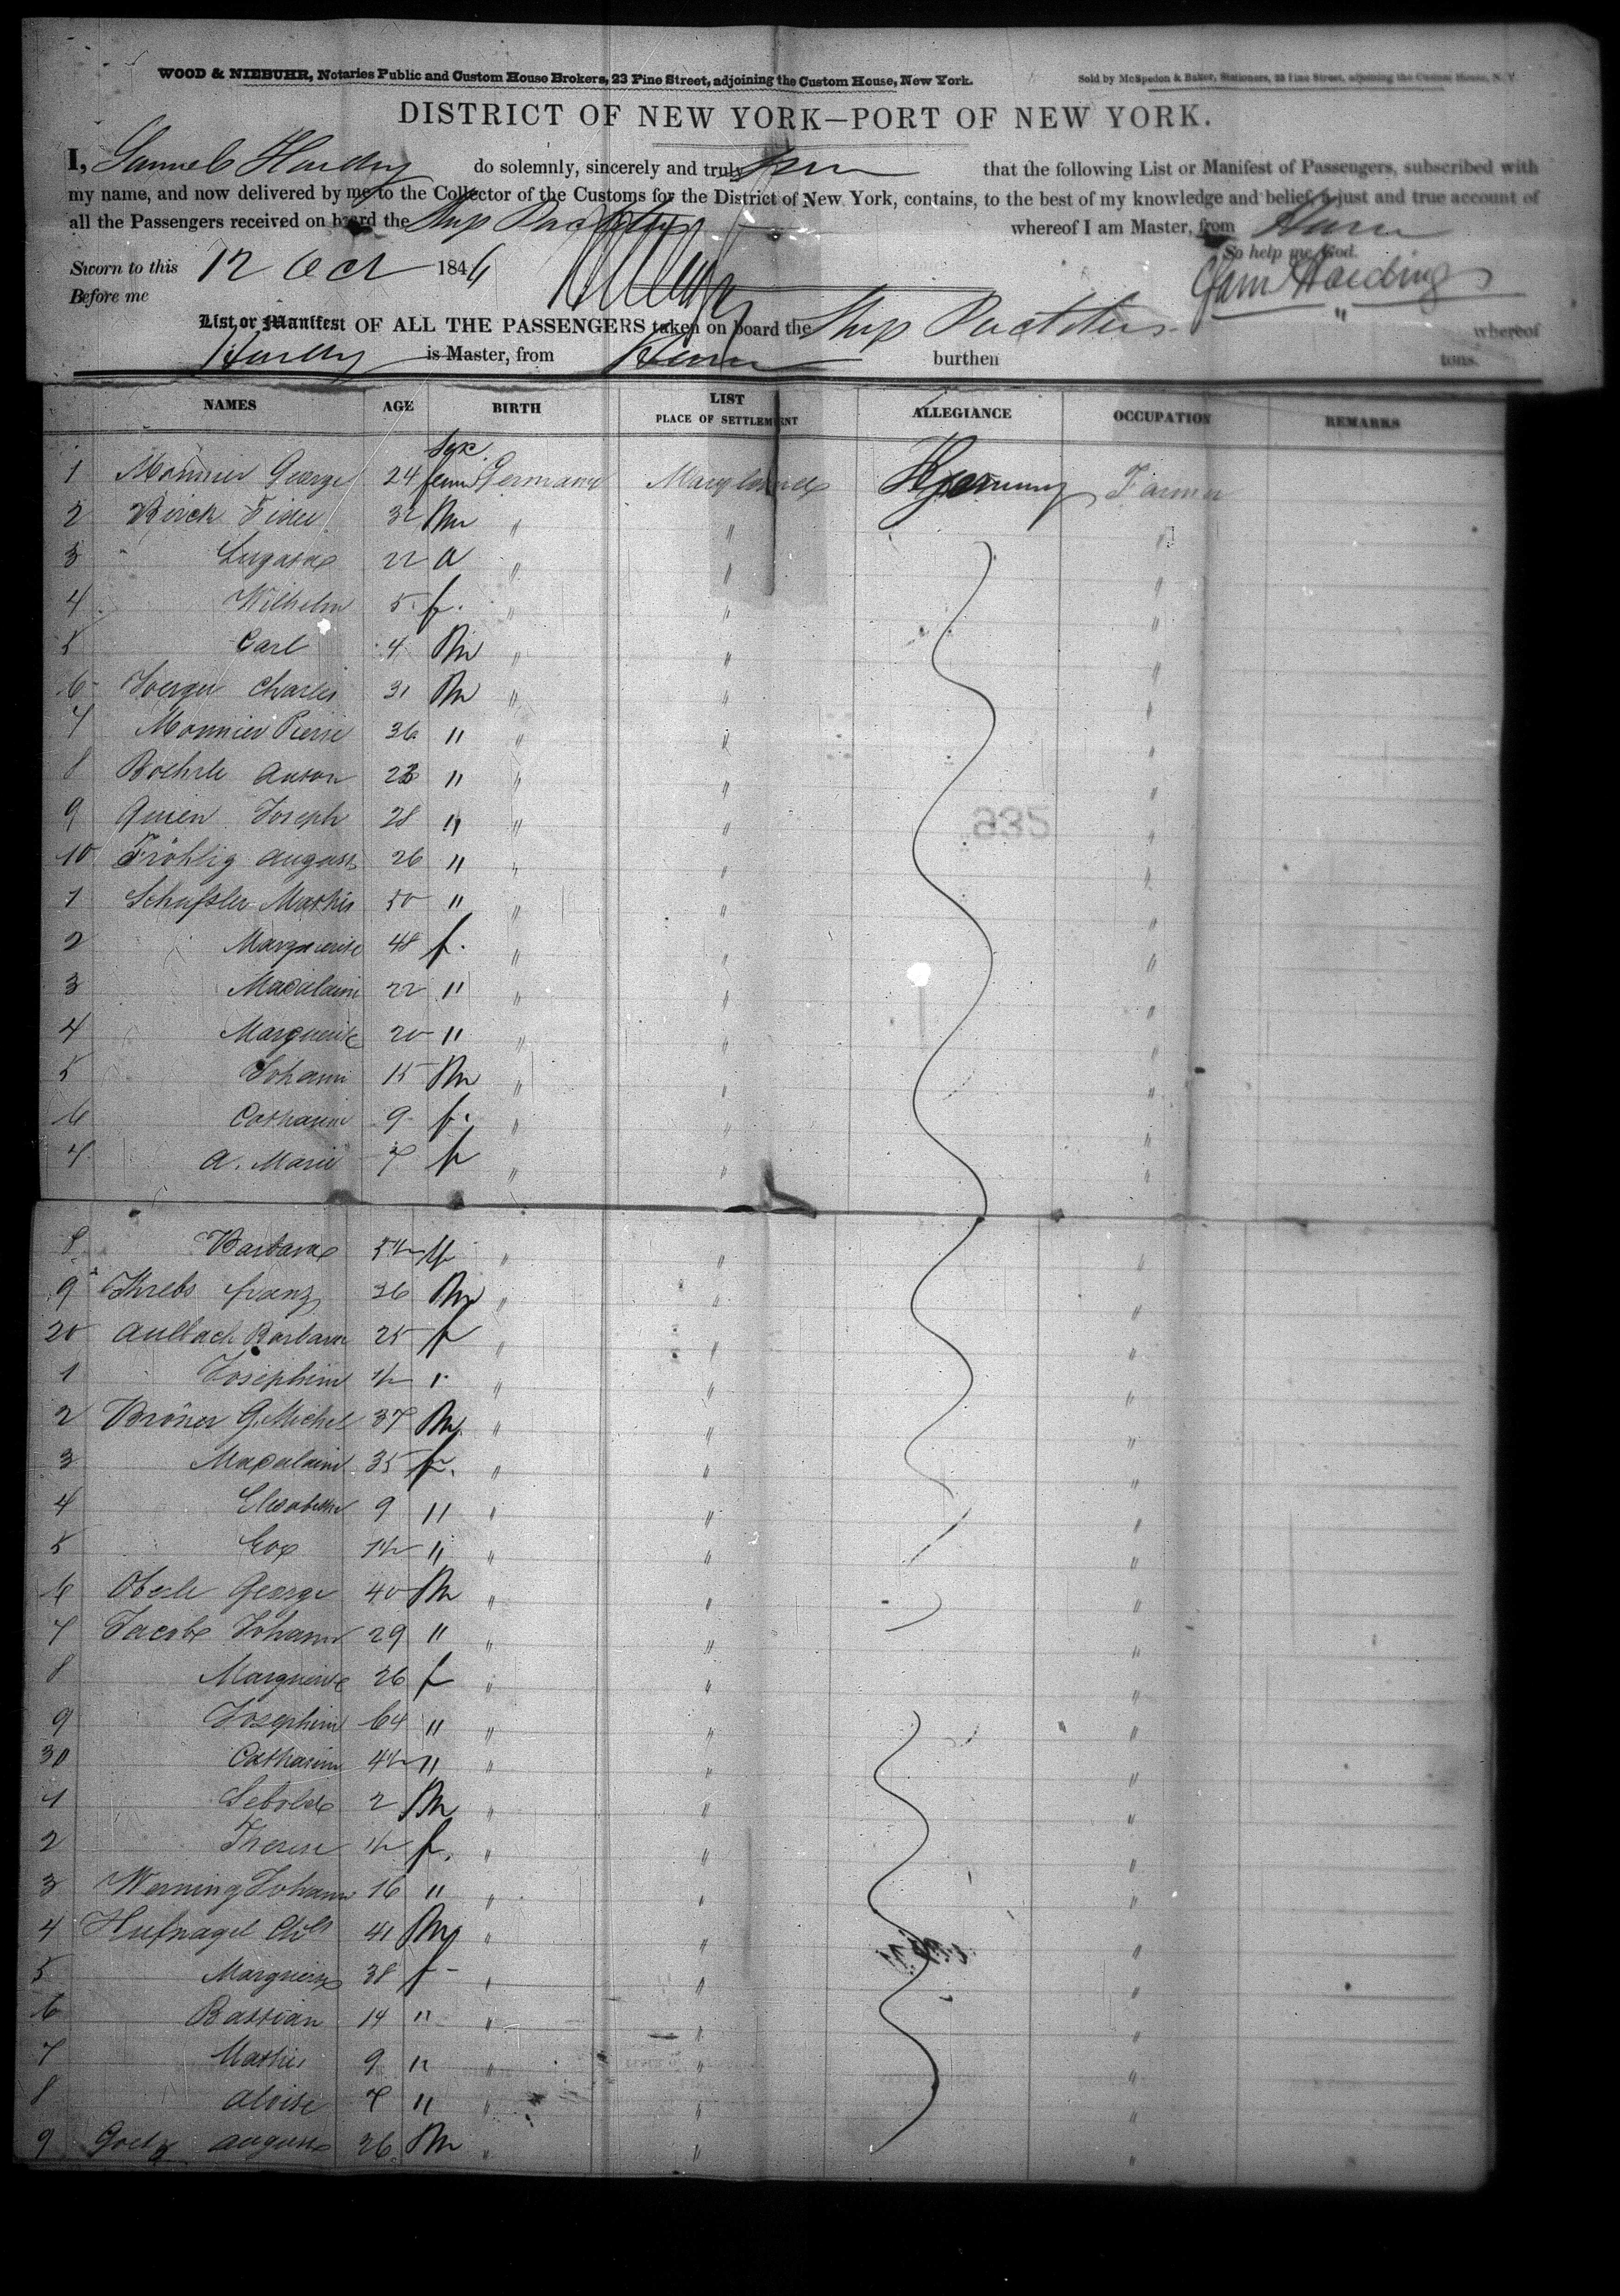 WOOD & NIEBUHR, Notaries Public and Custom House Brokers, 23 Pine Street, adjoining the Custom House, New York.
Sold by McSpedon & Baker, Stationers, 23 Pine Street, adjoining the Custom House, N. Y.
DISTRICT OF NEW YORK—PORT OF NEW YORK.
I, Samuel Harding do solemnly, sincerely and truly that the following List or Manifest of Passengers, subscribed with
my name, and now delivered by me to the Collector of the Customs for the District of New York, contains, to the best of my knowledge and belief, a just and true account of
all the Passengers received on board the Ship whereof I am Master, from
So help me God.
Sworn to this 12 Oct 1846
Sam Harding
Before me
List or Manifest OF ALL THE PASSENGERS taken on board the Ship whereof
is Master, from burthen tons.
NAMES AGE BIRTH LIST PLACE OF SETTLEMENT ALLEGIANCE OCCUPATION REMARKS
Sex
1 Monnier George 24 Germany Maryland Germany Farmer
2 Birck 32 m " " "
3 " 22 " " "
4 Wilhelm 5 f. " " "
5 Carl 4 m " " "
6 Charles 31 m " " "
7 Monnier Pierre 36 " " " "
8 Boehrle Anton 23 " " " "
9 Joseph 28 " " " "
10 Fröhlig August 26 " " " "
1 Schussler Mathis 50 " " " "
2 Marguerite 48 f. " " "
3 Madalaine 22 " " " "
4 Marguerite 20 " " " "
5 Johann 15 m " " "
6 Catharine 9 f. " " "
7 A. Marie 7 f " " "
235
8 Barbara f " " "
9 Krebs franz 36 m " " "
20 Aulbach Barbara 25 f " " "
1 Josephine 1/2 " " " "
2 Bröner G. Michel 37 m " " "
3 Madalaine 35 f. " " "
4 Elisabeth 9 " " " "
5 Eva " " " "
6 Oberle George 40 m " " "
7 Jacob Johann 29 " " " "
8 Marguerite 26 f " " "
9 Josephine " " " "
30 Catharine " " " "
1 Sebold 2 m " " "
2 Therese 1/2 f. " " "
3 Werning Johann 16 " " " "
4 Hufnagel 41 m " " "
5 Marguerite 38 f " " "
6 Bastian 14 " " " "
7 Mathis 9 " " " "
8 Aloise 7 " " " "
9 Goetz August 26 m " " "